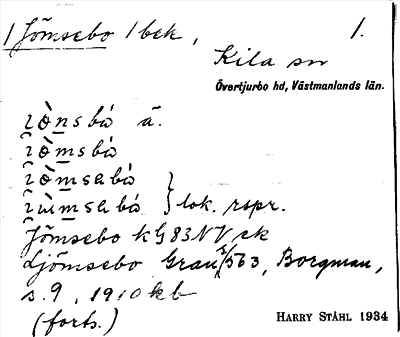 1 Jömsebo 1 bek, 1.
Kila sn
Övertjurbo hd, Västmanlands län.
ɩ̯ö̀nsbò ä.
ɩ̯ö̀msbò
ɩ̯ö̀msebò
ɩ̯ùmsebò } lok. rspr.
Jömsebo kG 83 NV ek
Ljömsebo Grau 5/563, Borgman,
s. 9, 1910 kb
(forts.)
HARRY STÅHL 1934